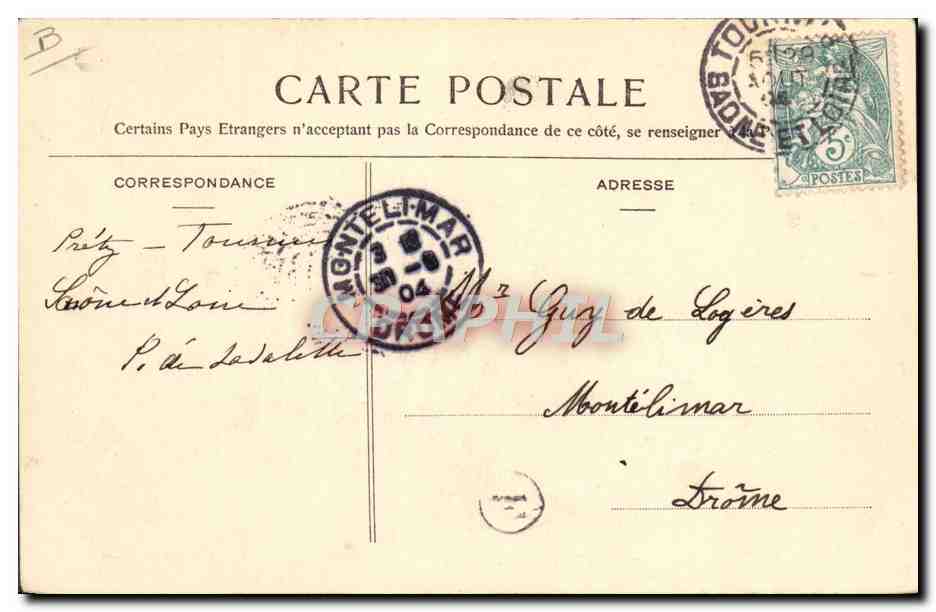 B
CARTE POSTALE
Certains Pays Etrangers n'acceptant pas la Correspondance de ce côté, se renseigner à la
CORRESPONDANCE
ADRESSE
Préty — Tournus
Saône et Loire
P. de
Mr Guy de Logères
Montélimar
Drôme
MONTELIMAR
30 -8
04
TOURNUS
29
AOUT
04
5c
POSTES
CPAPHIL